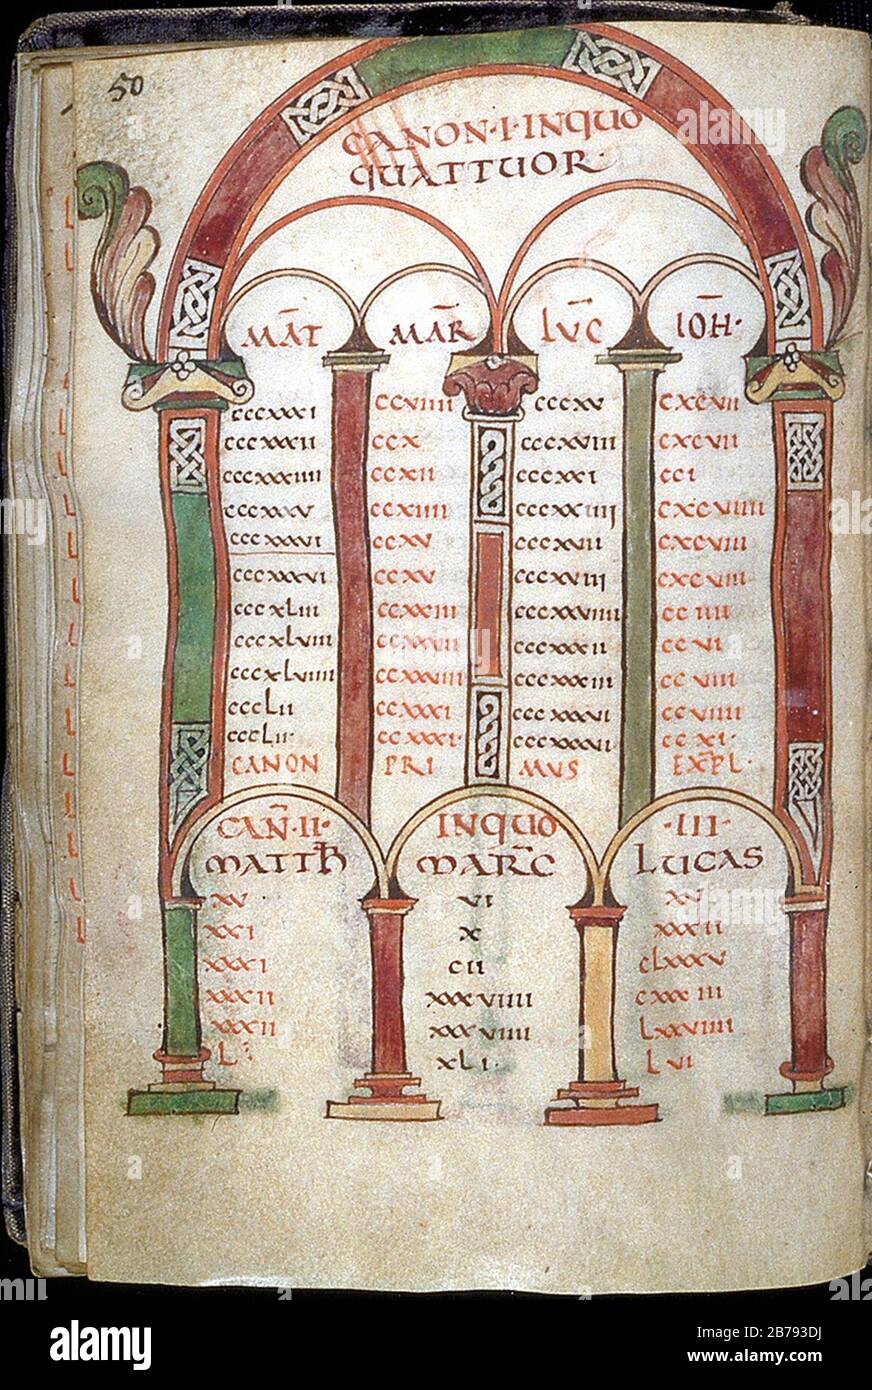 50
CANON·I·INQUO
QUATTUOR·
MAT MAR LUC IOH·
cccxxxi ccviiii cccxv cxcvii
cccxxxii ccx cccxviii cxcvii
cccxxxiiii ccxii cccxxi cci
cccxxxv ccxiiii cccxxiiii cxcviiii
cccxxxvi ccxv cccxvii cxcviii
cccxxxvi ccxv cccxviii cxcviii
cccxliii ccxxiii cccxxviiii cciiii
cccxlviii ccxxvii cccxxxii ccvi
cccxlviiii ccxxviii cccxxxiii ccviii
cccLii ccxxxi cccxxxvi ccviiii
cccLii· ccxxxi· cccxxxvii ccxi·
CANON PRI MUS EXPL·
CAN·II· INQUO ·III·
MATTH MARC LUCAS
xv vi xv
xxi x xxxii
xxxi cii cLxxxv
xxxii xxxviiii cxxxiii
xxxii xxxviiii Lxxviiii
L· xLi· Lvi
alamy
Image ID: 2B793DJ
www.alamy.com